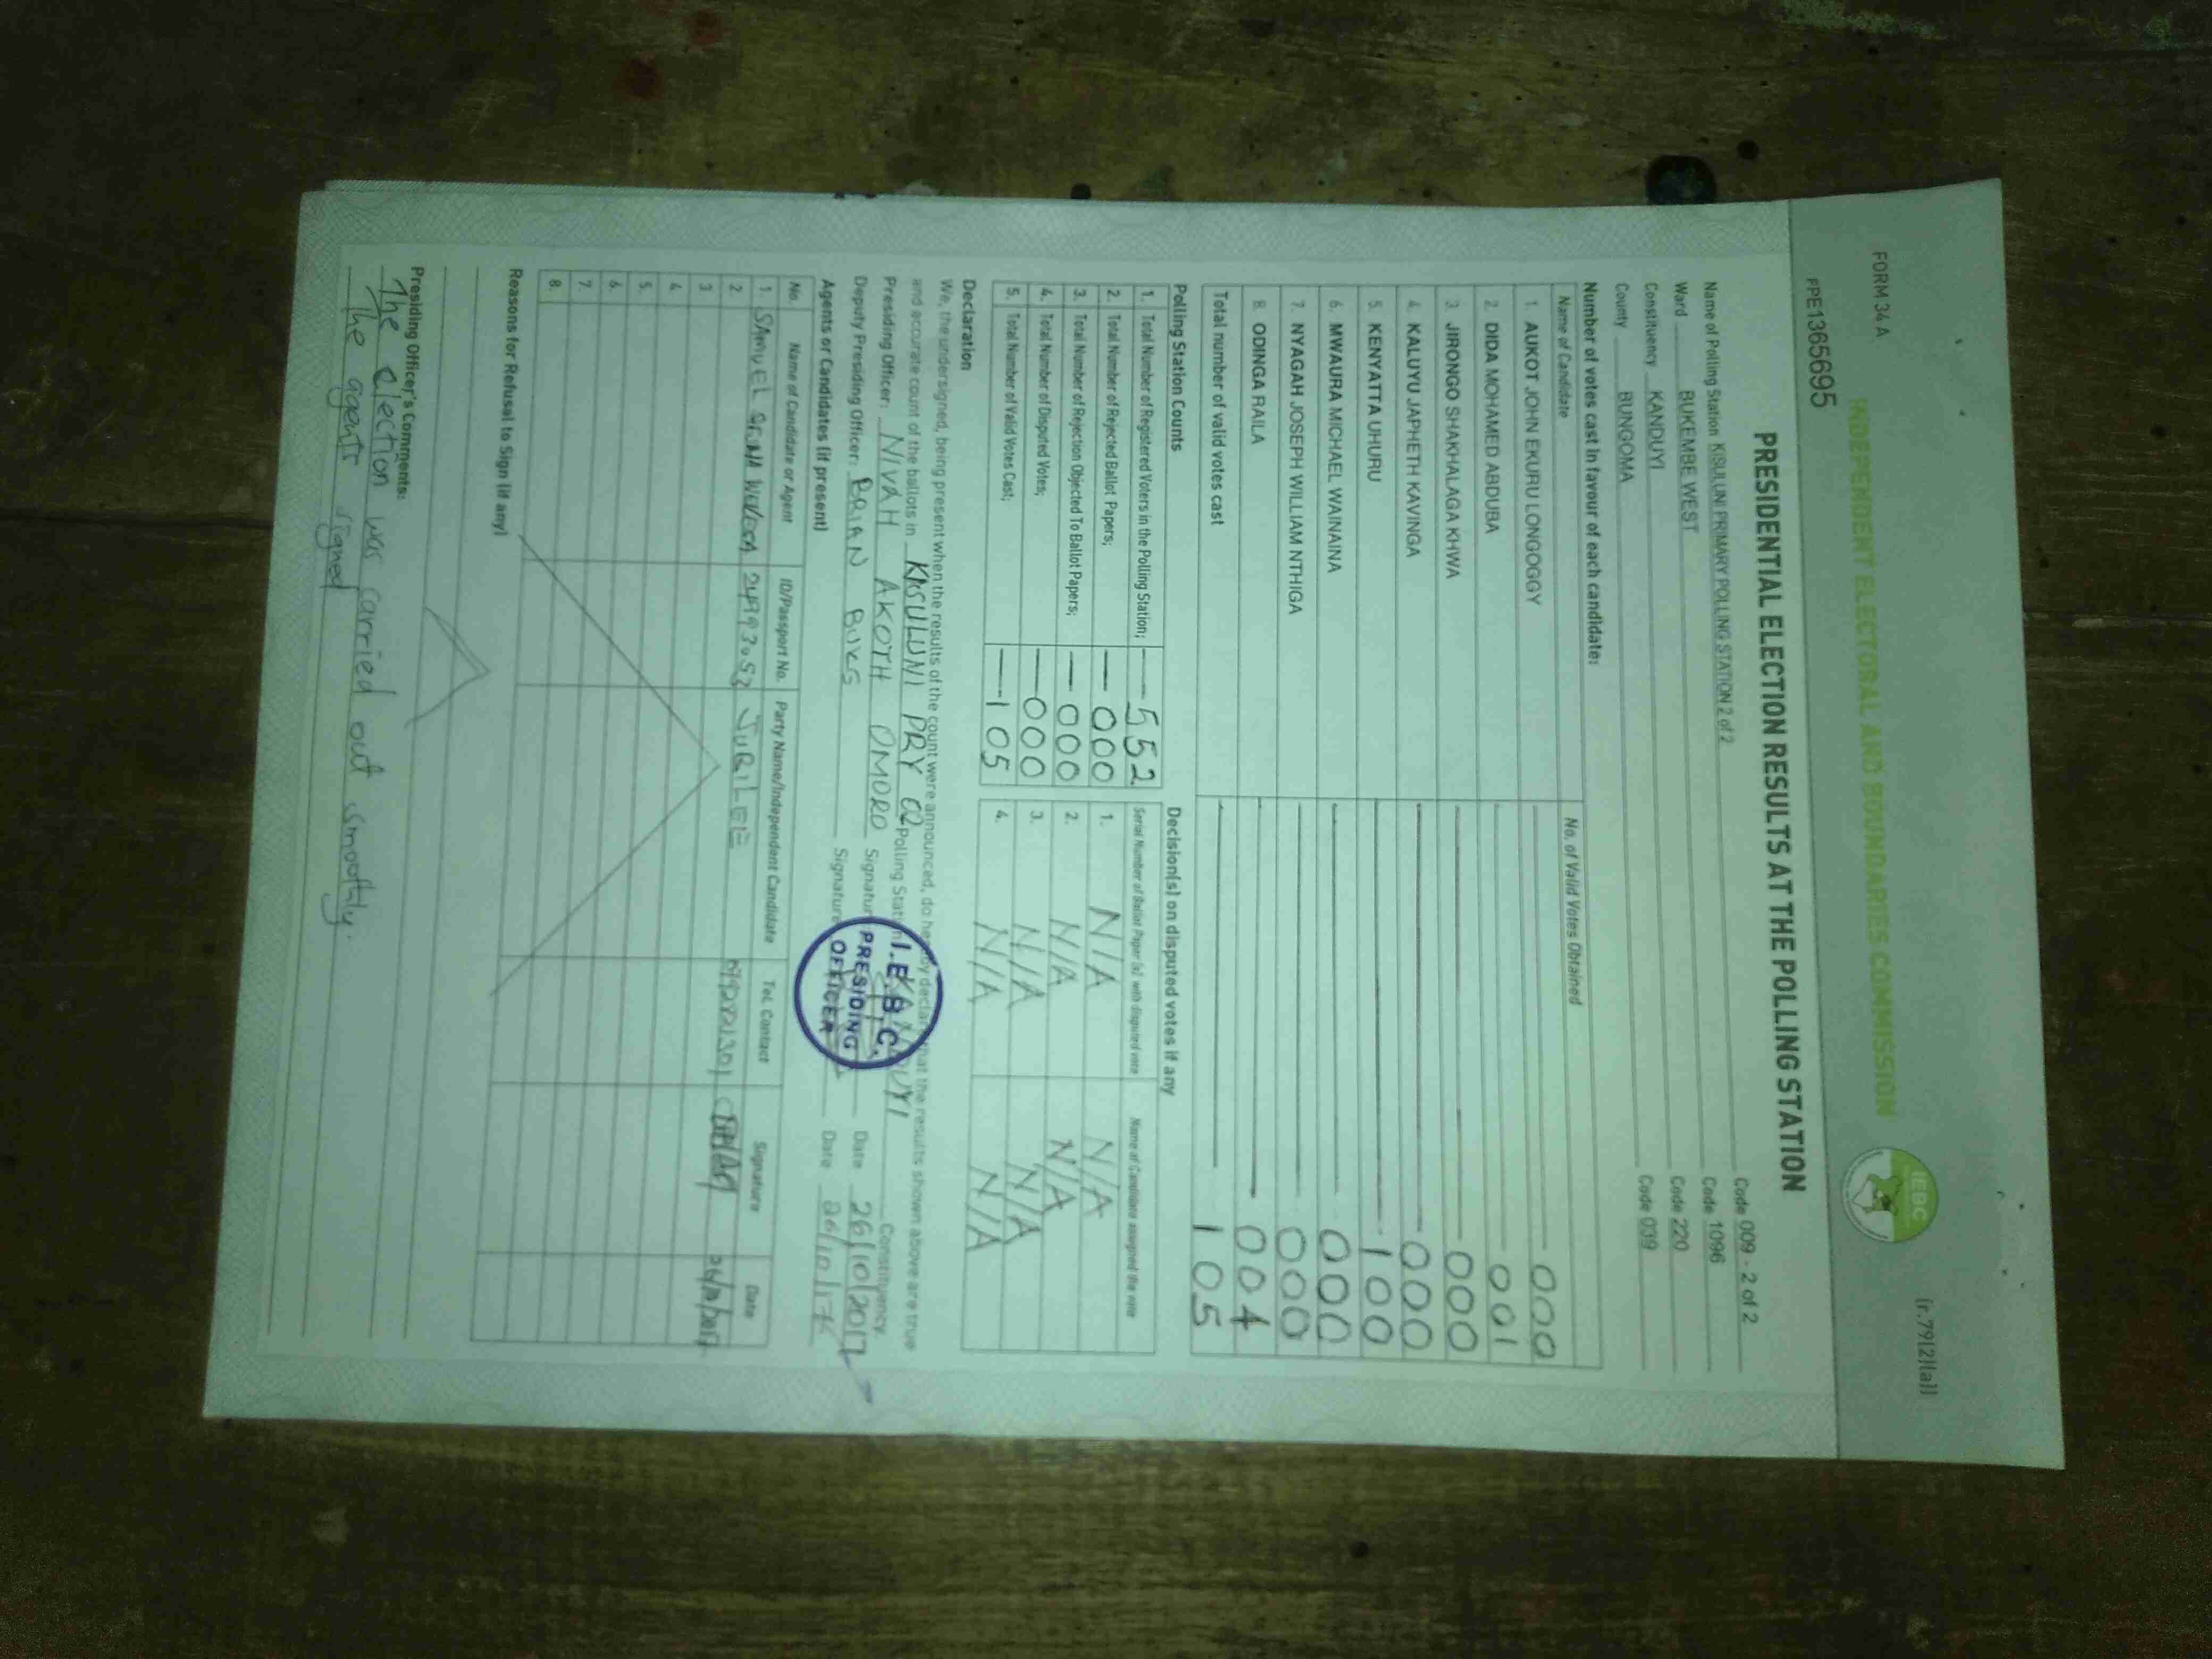 FORM 34 A
(r.79(2)(a))
INDEPENDENT ELECTORAL AND BOUNDARIES COMMISSION
IEBC
PPE1365695
PRESIDENTIAL ELECTION RESULTS AT THE POLLING STATION
Name of Polling Station KISULUNI PRIMARY POLLING STATION 2 of 2 Code 009 - 2 of 2
Ward BUKEMBE WEST Code 1096
Constituency KANDUYI Code 220
County BUNGOMA Code 039
Number of votes cast in favour of each candidate:
Name of Candidate No. of Valid Votes Obtained
1. AUKOT JOHN EKURU LONGOGGY 000
2. DIDA MOHAMED ABDUBA 001
3. JIRONGO SHAKHALAGA KHWA 000
4. KALUYU JAPHETH KAVINGA 000
5. KENYATTA UHURU 100
6. MWAURA MICHAEL WAINAINA 000
7. NYAGAH JOSEPH WILLIAM NTHIGA 000
8. ODINGA RAILA 004
Total number of valid votes cast 105
Polling Station Counts Decision(s) on disputed votes if any
1. Total Number of Registered Voters in the Polling Station; 552 Serial Number of Ballot Paper (s) with disputed vote Name of Candidate assigned the vote
2. Total Number of Rejected Ballot Papers; 000 1. N/A N/A
3. Total Number of Rejection Objected To Ballot Papers; 000 2. N/A N/A
4. Total Number of Disputed Votes; 000 3. N/A N/A
5. Total Number of Valid Votes Cast; 105 4. N/A N/A
Declaration
We, the undersigned, being present when the results of the count were announced, do hereby declare that the results shown above are true
and accurate count of the ballots in KISULUNI PRY 02 Polling Station KANDUYI Constituency.
Presiding Officer: NIVAH AKOTH OMORO Signature Date 26/10/2017
Deputy Presiding Officer: BRIAN Signature Date 26/10/17
I.E.B.C.
PRESIDING
OFFICER
Agents or Candidates (if present)
No. Name of Candidate or Agent ID/Passport No. Party Name/Independent Candidate Tel. Contact Signature Date
1. SAMUEL JUBILEE
2.
3.
4.
5.
6.
7.
8.
Reasons for Refusal to Sign (if any)
Presiding Officer's Comments:
The election was carried out smoothly.
The agents signed